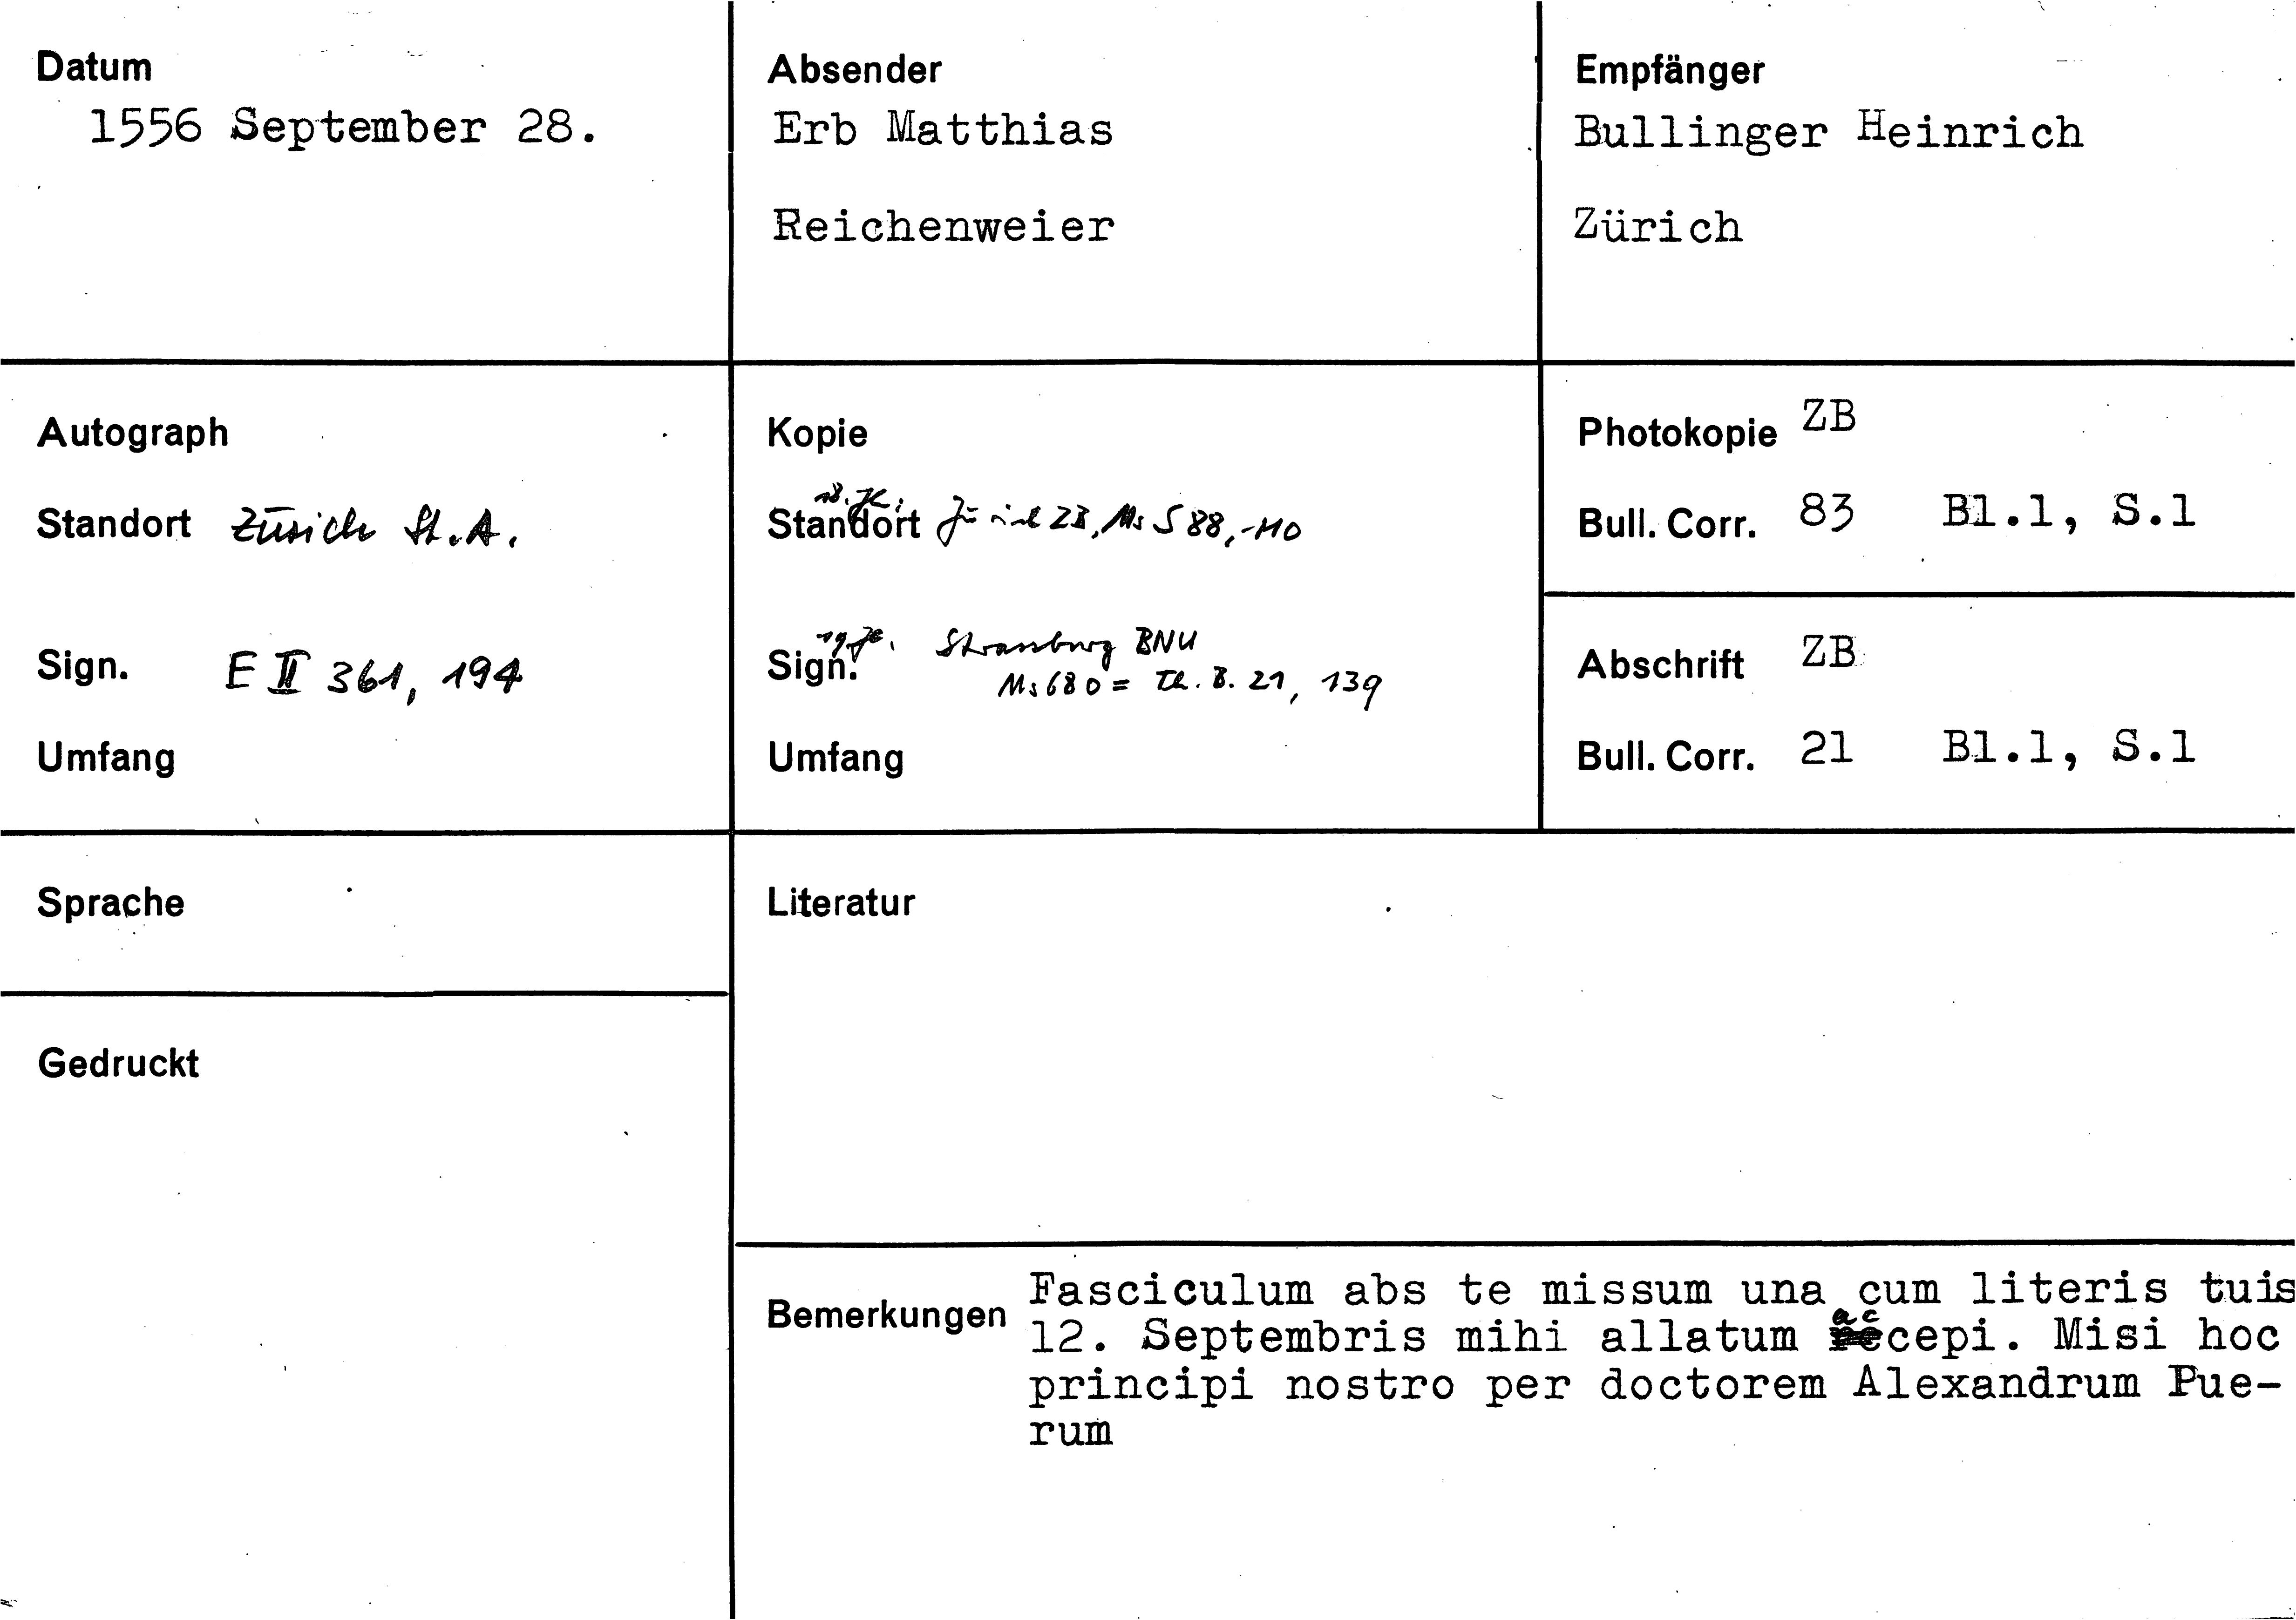 Datum
1556 September 28.
Absender
Erb Matthias
Reichenweier
Empfänger
Bullinger Heinrich
Zürich
Autograph
Standort Zürich St.A.
Sign. E II 361, 194
Umfang
Kopie
18. Jh.
Standort Zürich ZB, Ms S 88, 110
19. Jh. Strassburg BNU
Sign. Ms 680 = Th. B. 21, 139
Umfang
Photokopie ZB
Bull. Corr. 83 Bl.1, S.1
Abschrift ZB
Bull. Corr. 21 Bl.1, S.1
Sprache
Gedruckt
Literatur
Bemerkungen
Fasciculum abs te missum una cum literis tuis
12. Septembris mihi allatum accepi. Misi hoc
principi nostro per doctorem Alexandrum Pue-
rum